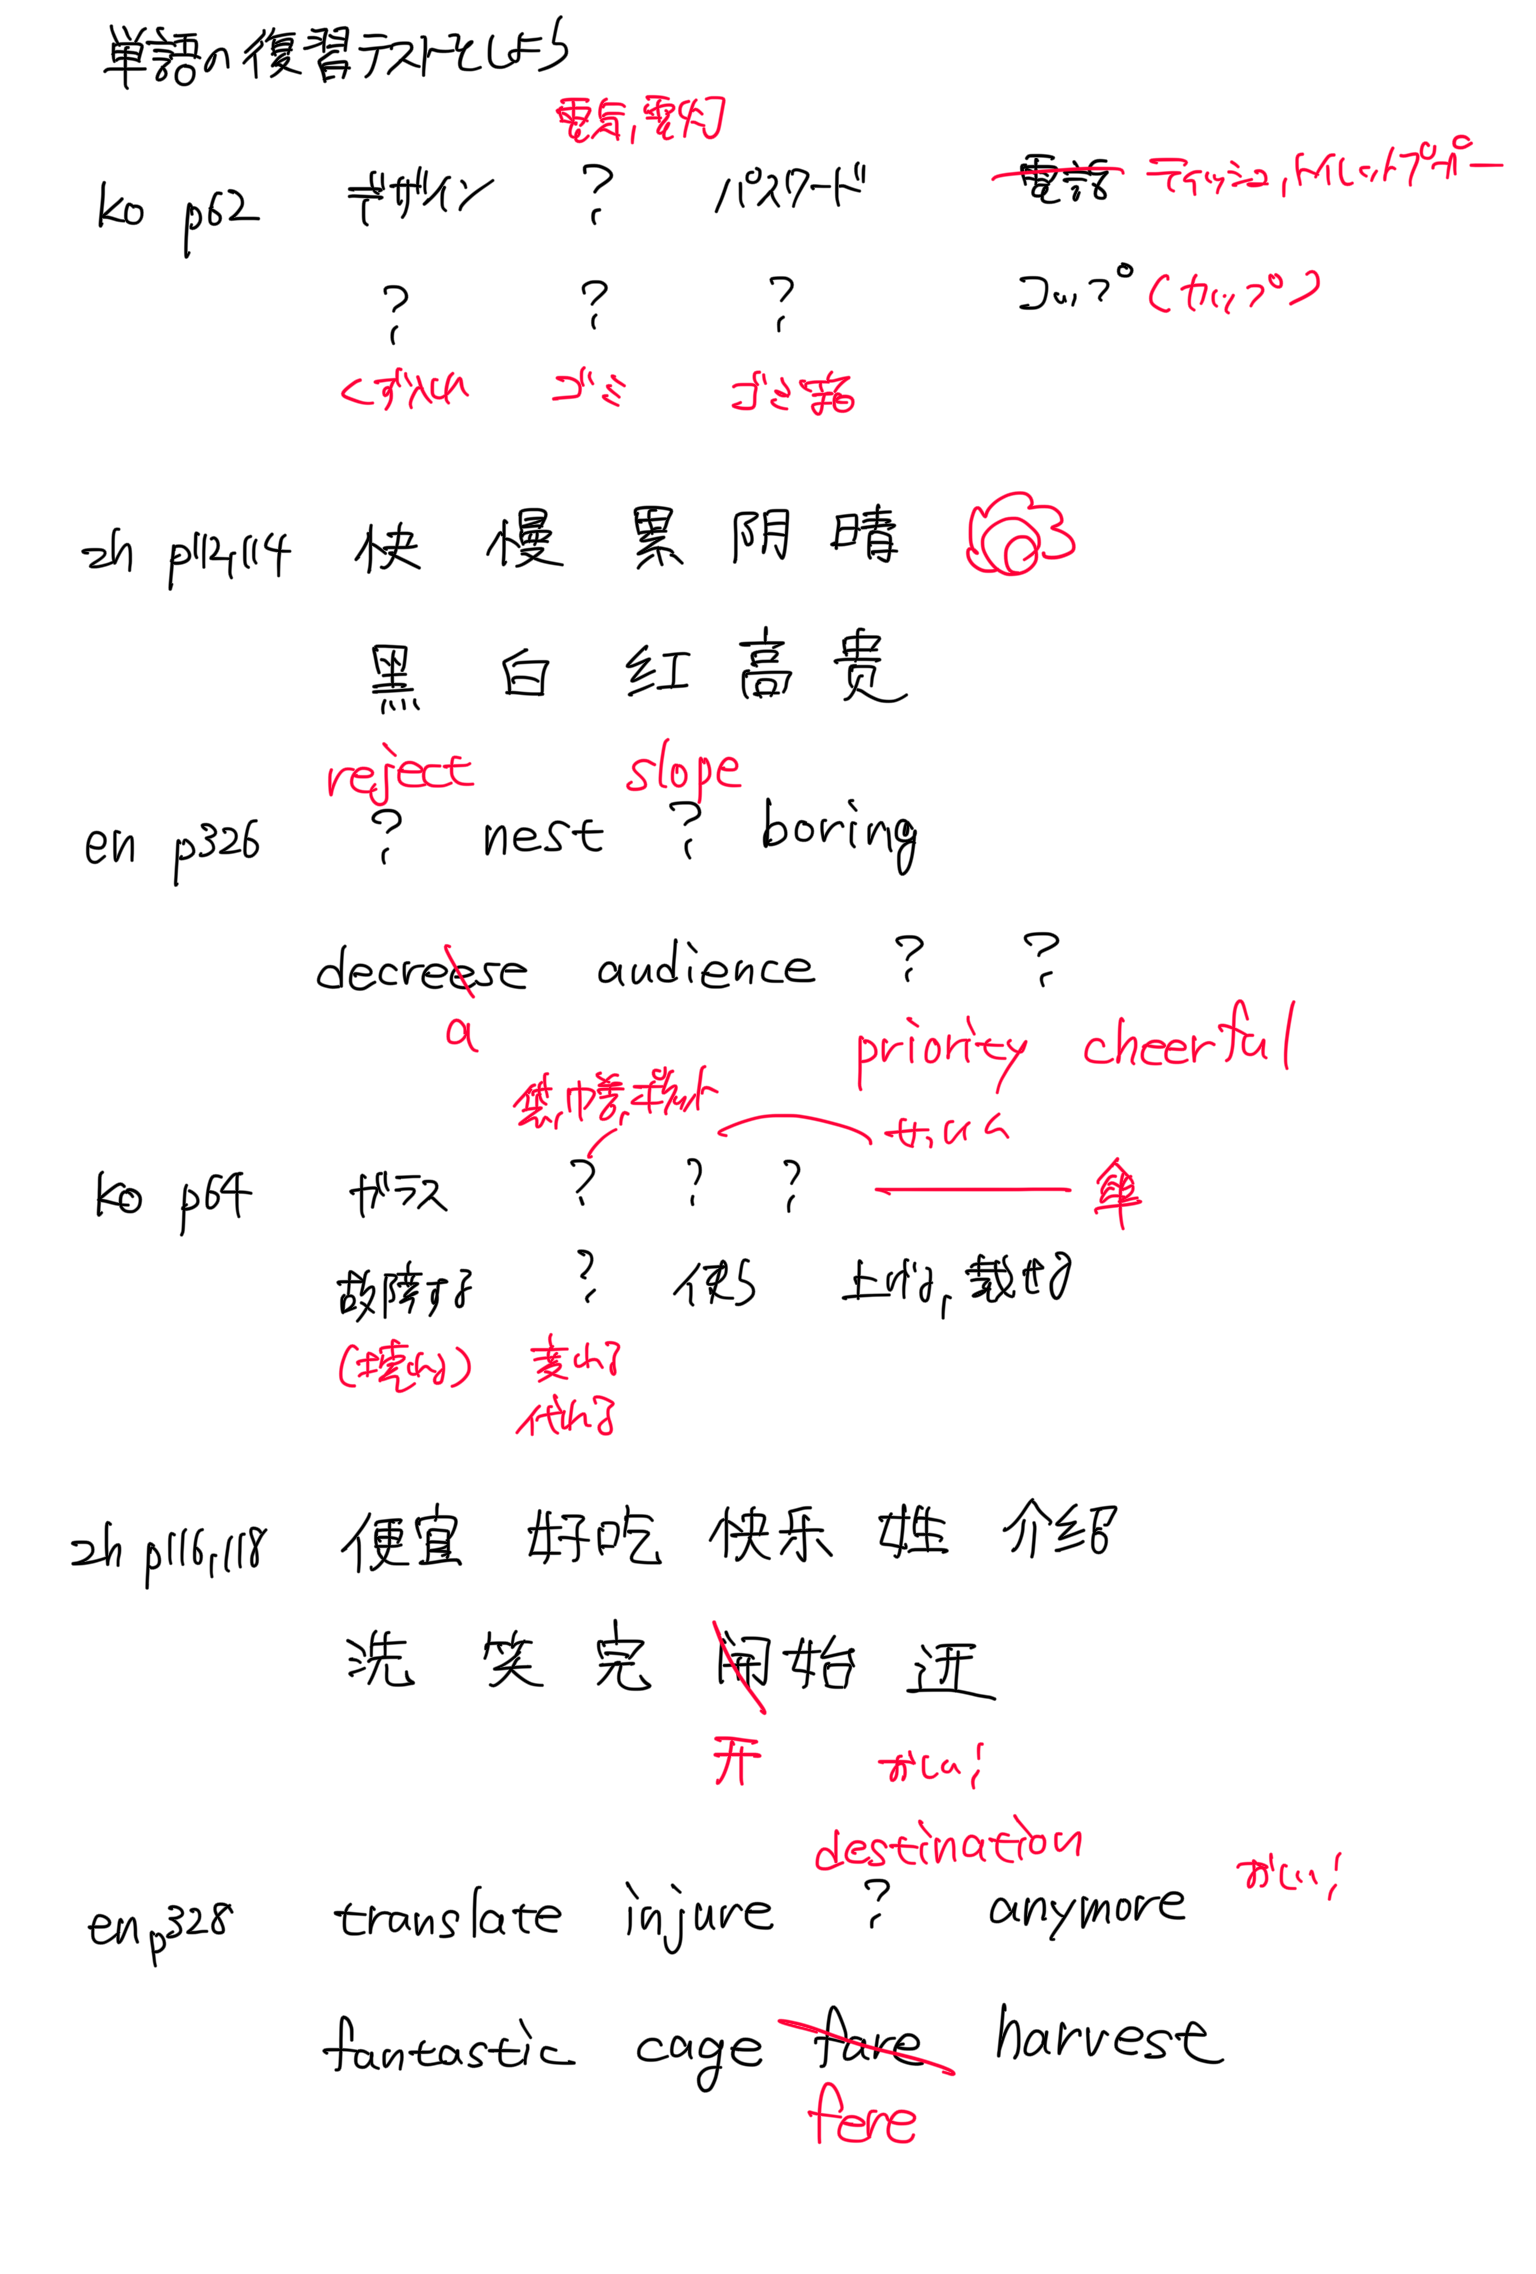 単語の復習テストをしよう
電気,電灯
ko p62 デザイン ? パスワード 電話 ティッシュ,トイレットペーパー
? ? ? コップ (カップ)
くずいれ ゴミ ゴミ箱
zh p112,114 快 慢 累 阴 晴
黑 白 红 高 贵
reject slope
en p326 ? nest ? boring
decreese audience ? ?
a priority cheerful
ko p64 ガラス ? ? ? 傘
故障する ? 使う 上げる,載せる
(壊れる) 変わる
代わる
zh p116,118 便宜 好吃 快乐 姓 介绍
洗 笑 完 闹始 进
开 おしい!
destination おしい!
en p328 translate injure ? anymore
fantastic cage fare harvest
fere